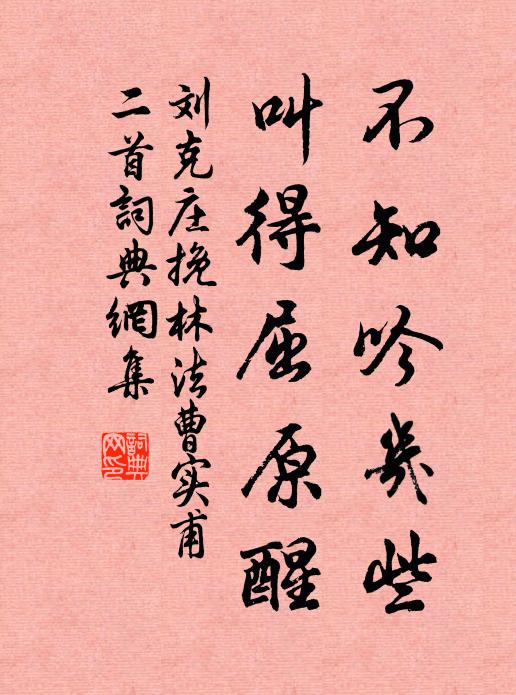 不知吟幾些
叫得屈原醒
刘克庄挽林法曹实甫
二首詞典網集
詞典網印